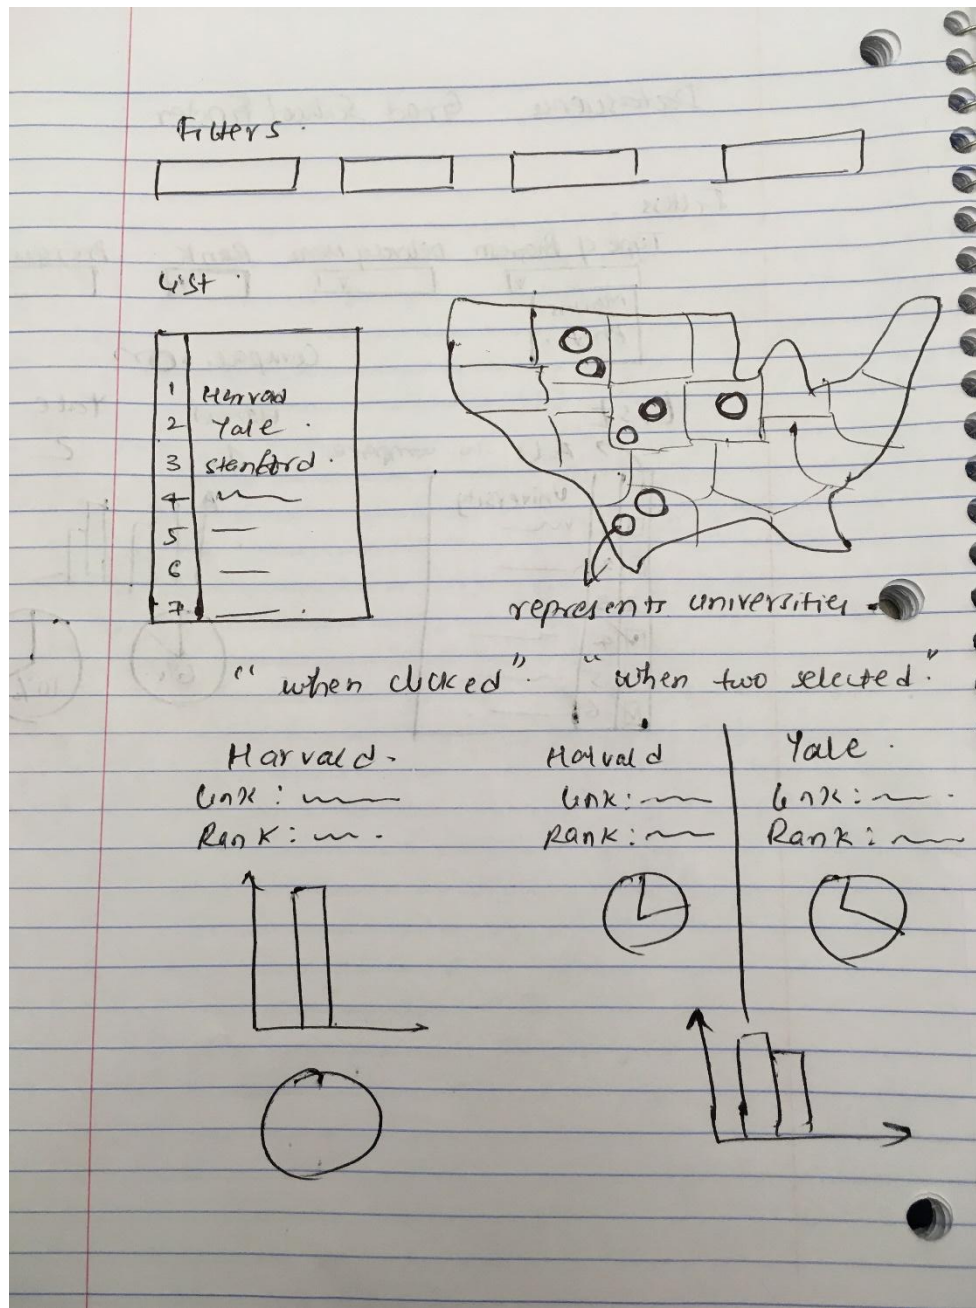 Filters.
List.
1 Harvad
2 Yale.
3 stanford.
4
5
6
7
represents universities.
"when clicked". "when two selected."
Harvald. Halvald Yale.
Link: Link: Link:
Rank: Rank: Rank: